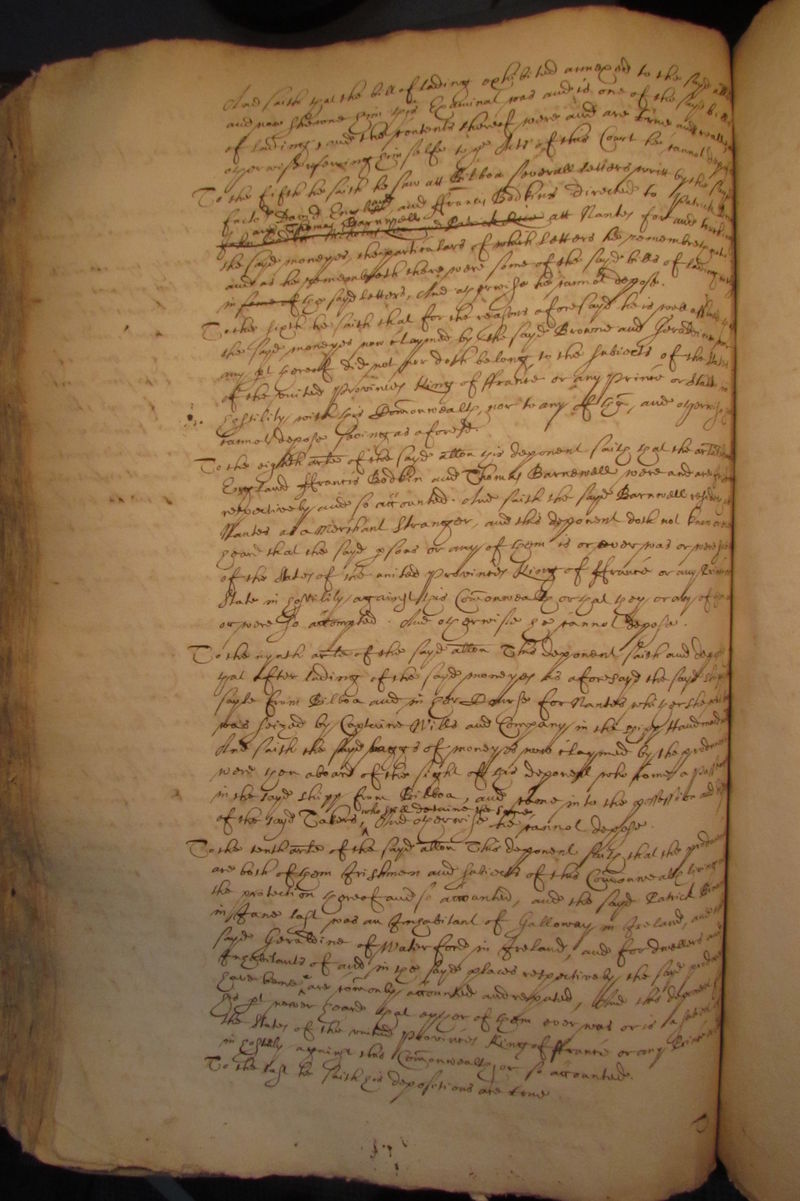 And saith that the bill of lading exhibited annexed to the sayd
and now shewne him this Examinat was and is one of the sayd bills
of lading, and the contents thereof were and are true and
otherwise referring him selfe to the Acts of this Court he cannot depose
To the fifth he saith he saw att Bilboa severall letters writt by the sayd
David and ffrancis Bodkin directed to Patrick
and Thomas Barnwell att Nantes for and touching
the sayd moneyes, the particulars of which letters he remembreth not
and as he remembreth there were some of the sayd bills of lading
in some of the sayd letters, And otherwise he cannot depose.
To the sixth he saith that for the reasons aforesayd he is well assured that
the sayd moneyes now claymed by the sayd Browne and Geraldine nor
any pt thereof did not nor doth belong to the subiects of the States
of the united Provinces King of ffrance or any Prince or State in
hostility with this Comonwealth, nor to any of them, and otherwise he
cannot depose saving as aforesd.
To the eighth arte of the sayd allon this deponent saith that the
ffrancis Bodkin and Thomas Barnewell were and are
respectively and so accounted. And saith the sayd Barnwell resideth at
Nantes as a Merchant Stranger, and this deponent doth not know nor
heard that the sayd psons or any of them is or ever was or were
of the States of the united Provinces King of ffrance or any Prince
State in hostility against this Comonwealth or that they or any of them
or were so accompted. And otherwise he cannot depose.
To the nynth arte of the sayd allon This deponent saith and deposeth
that after lading of the sayd moneyes as aforesayd the sayd shipp
sayle from Bilboa and in her Course for Nantes
was seized by Captaine Mills and Company in the
And saith the sayd baggs of moneyes now claymed by the
were then aboard of the sight of this deponent who came a passenger
in the sayd shipp from Bilboa, and came into the possession and
of the sayd Takers, who still detaine the same, And otherwise he cannot depose.
To the tenth arte of the sayd allon This deponent saith that the
are both of them Irishmen and subiects of this Comonwealth living
the protection thereof and so accounted, and the sayd Patrick
in June last was an Inhabitant of Galloway in Ireland, and the
sayd Geraldine of Waterford in Ireland, and for dwellers and
Inhabitants of and in the sayd places respectively the sayd
have bene & are comonly accounted and reputed, And this deponent
his pt never heard that any or of them ever was or is a subiect
the States of the united Provinces King of ffrance or any Prince
in hostility against this Comonwealth, or so accounted.
To the last he saith his depositions are true